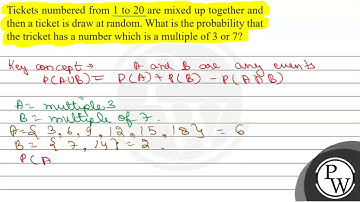 Tickets numbered from 1 to 20 are mixed up together and
then a ticket is draw at random. What is the probability that
the tricket has a number which is a multiple of 3 or 7?
Key concept → A and B are any events
P(AUB) = P(A) + P(B) - P(A∩B)
A = multiple 3
B = multiple of 7.
A = { 3, 6, 9, 12, 15, 18 } = 6
B = { 7, 14 } = 2.
P(A
PW